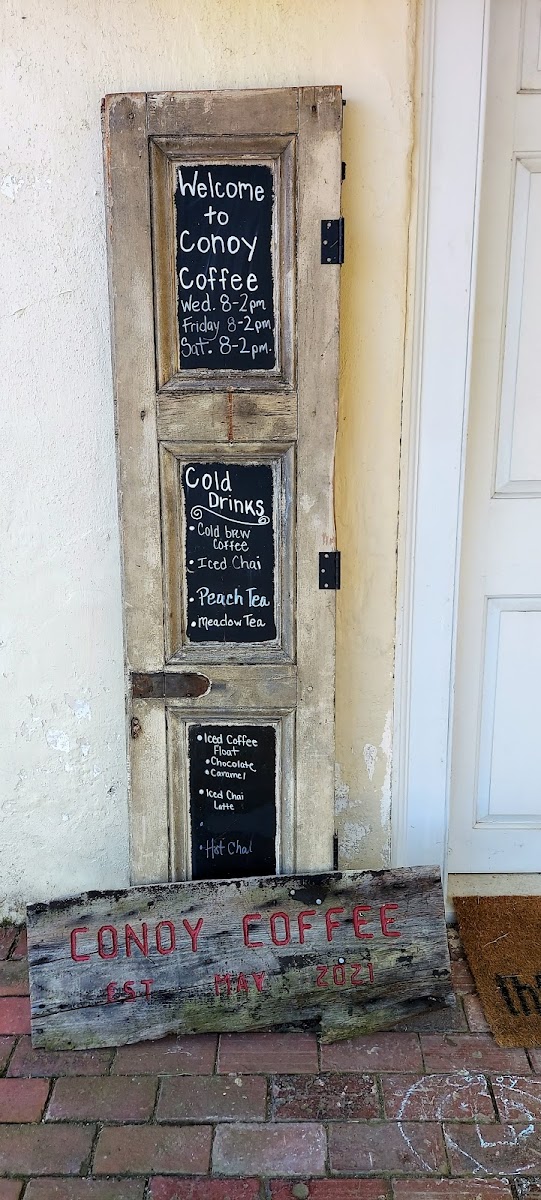 Welcome
to
Conoy
Coffee
Wed. 8-2pm
Friday 8-2pm
Sat. 8-2pm.
Cold
Drinks
• Cold brew
Coffee
• Iced Chai
• Peach Tea
• Meadow Tea
• Iced Coffee
Float
• Chocolate
• Caramel
• Iced Chai
Latte
• Hot Chai
CONOY COFFEE
EST MAY 2021